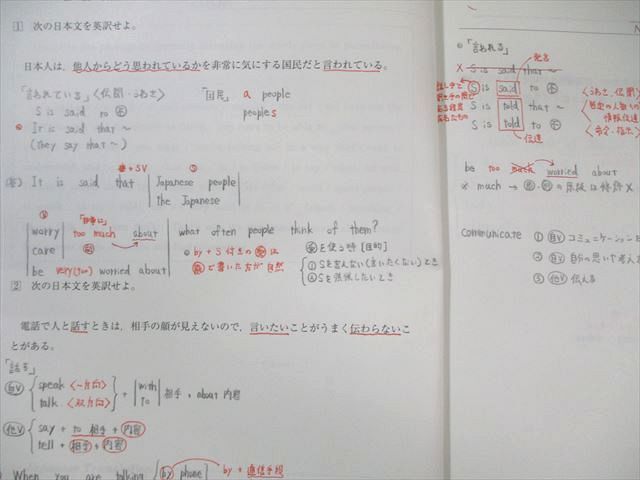 1 次の日本文を英訳せよ。
日本人は,他人からどう思われているかを非常に気にする国民だと言われている。
「言われている」〈伝聞・うわさ〉
S is said to 不
It is said that ~
(They say that ~)
「国民」 a people
peoples
that + SV
(答) It is said that Japanese people
the Japanese
worry too much about
care
be very(too) worried about
what often people think of them?
by + S 付きの 受 は
能 で書いた方が自然
受 を使う時 [目的]
① Sを言えない(言いたくない)とき
② Sを強調したいとき
2 次の日本文を英訳せよ。
電話で人と話すときは,相手の顔が見えないので,言いたいことがうまく伝わらないこ
とがある。
「話る」
自V speak 〈一方向〉
talk 〈双方向〉
+ with 相手 + about 内容
to
他V say + to 相手 + 内容
tell + 相手 + 内容
When you are talking by phone by + 通信手段
N
「言われる」 発言
× S is said that ~
S is said to 不 〈うわさ、伝聞〉
S is told that ~
情報伝達〉
S is told to 不 〈命令・指示〉
伝達
be too much worried about
※ much → の原級は修飾×
communicate ① 自V コミュニケーション
② 自V 自分の思いや考え
③ 他V 伝える